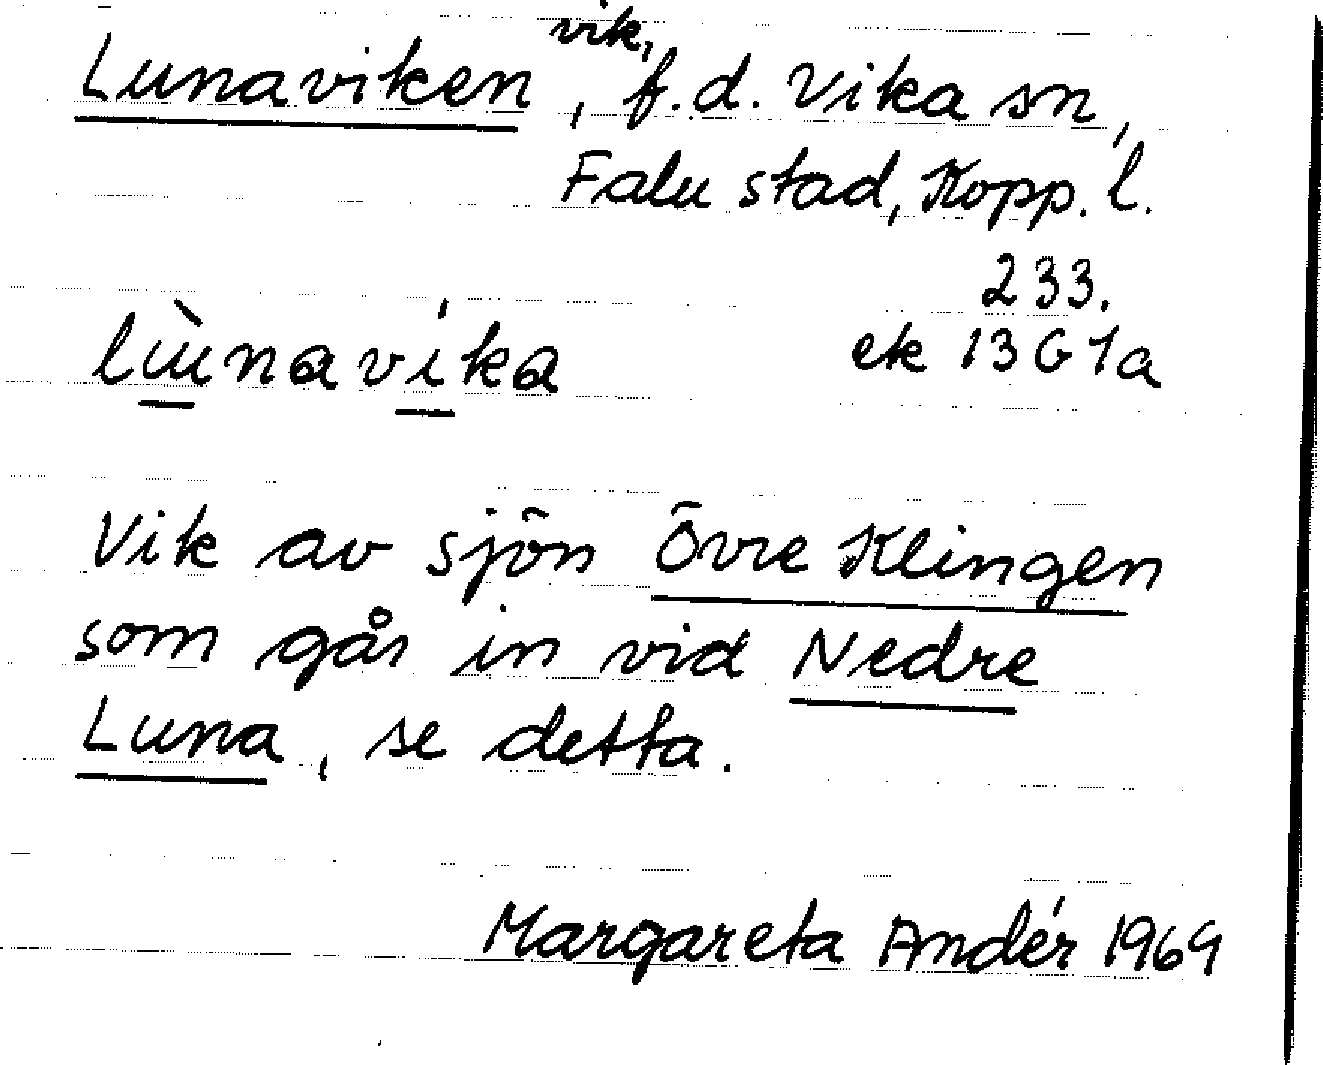 vik,
Lunaviken, f.d. Vika sn,
Falu stad, Kopp. l.
233.
lùnavíka ek 13G1a
Vik av sjön Övre Klingen
som går in vid Nedre
Luna, se detta.
Margareta Andér 1969